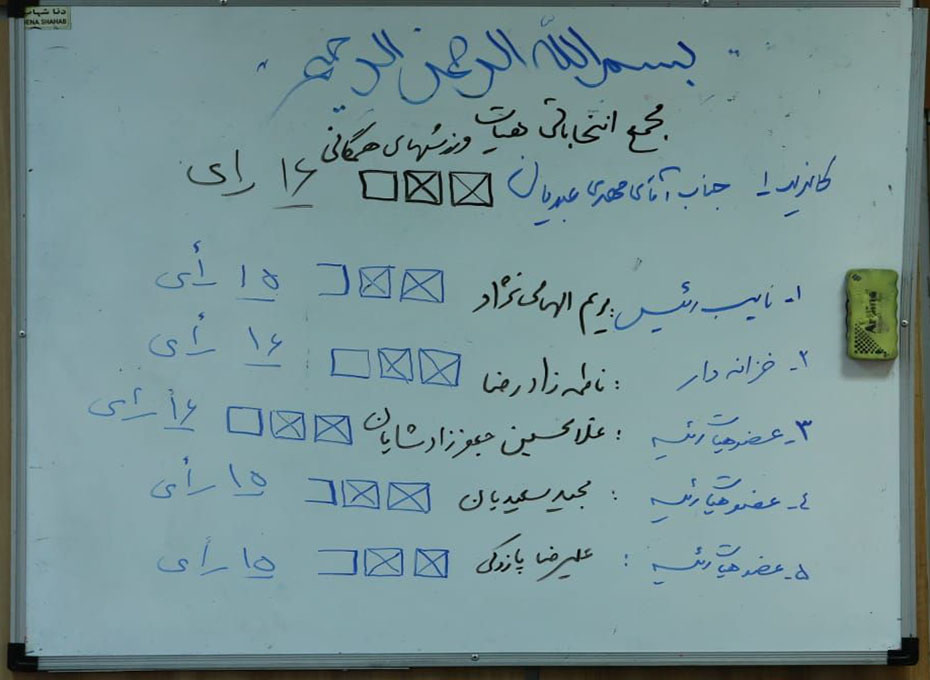 دنا شهاب
DENA SHAHAB
" بسم الله الرحمن الرحیم "
مجمع انتخاباتی هیات ورزشهای همگانی
کاندید ۱ـ جناب آقای مهدی عبدیان ۱۶ رأی
۱ـ نایب رئیس : مریم الهامی نژاد ۱۵ رأی
۲ـ خزانه دار : فاطمه زاد رضا ۱۶ رأی
۳ـ عضو هیات رئیسه : غلامحسین جعفرزاد شایان ۱۶ رأی
٤ـ عضو هیات رئیسه : مجید سعیدیان ۱۵ رأی
۵ـ عضو هیات رئیسه : علیرضا پازوکی ۱۵ رأی